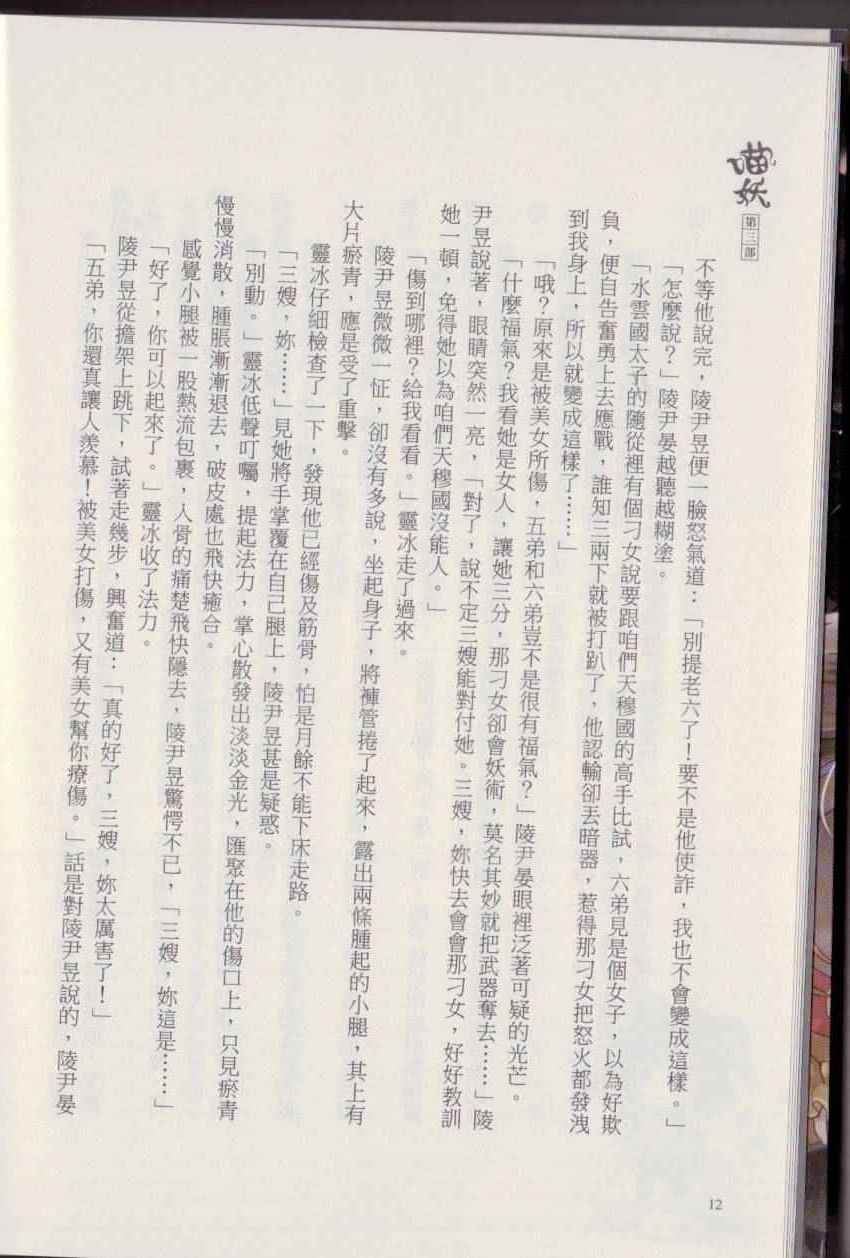 喵妖
第三部
不等他說完，陵尹昱便一臉怒氣道：「別提老六了！要不是他使詐，我也不會變成這樣。」
「怎麼說？」陵尹晏越聽越糊塗。
「水雲國太子的隨從裡有個刁女說要跟咱們天穆國的高手比試，六弟見是個女子，以為好欺
負，便自告奮勇上去應戰，誰知三兩下就被打趴了，他認輸卻丟暗器，惹得那刁女把怒火都發洩
到我身上，所以就變成這樣了……」
「哦？原來是被美女所傷，五弟和六弟豈不是很有福氣？」陵尹晏眼裡泛著可疑的光芒。
「什麼福氣？我看她是女人，讓她三分，那刁女卻會妖術，莫名其妙就把武器奪去……」陵
尹昱說著，眼睛突然一亮，「對了，說不定三嫂能對付她。三嫂，妳快去會會那刁女，好好教訓
她一頓，免得她以為咱們天穆國沒能人。」
「傷到哪裡？給我看看。」靈冰走了過來。
陵尹昱微微一怔，卻沒有多說，坐起身子，將褲管捲了起來，露出兩條腫起的小腿，其上有
大片瘀青，應是受了重擊。
靈冰仔細檢查了一下，發現他已經傷及筋骨，怕是月餘不能下床走路。
「三嫂，妳……」見她將手掌覆在自己腿上，陵尹昱甚是疑惑。
「別動。」靈冰低聲叮囑，提起法力，掌心散發出淡淡金光，匯聚在他的傷口上，只見瘀青
慢慢消散，腫脹漸漸退去，破皮處也飛快癒合。
感覺小腿被一股熱流包裹，入骨的痛楚飛快隱去，陵尹昱驚愕不已，「三嫂，妳這是……」
「好了，你可以起來了。」靈冰收了法力。
陵尹昱從擔架上跳下，試著走幾步，興奮道：「真的好了，三嫂，妳太厲害了！」
「五弟，你還真讓人羨慕！被美女打傷，又有美女幫你療傷。」話是對陵尹昱說的，陵尹晏
12